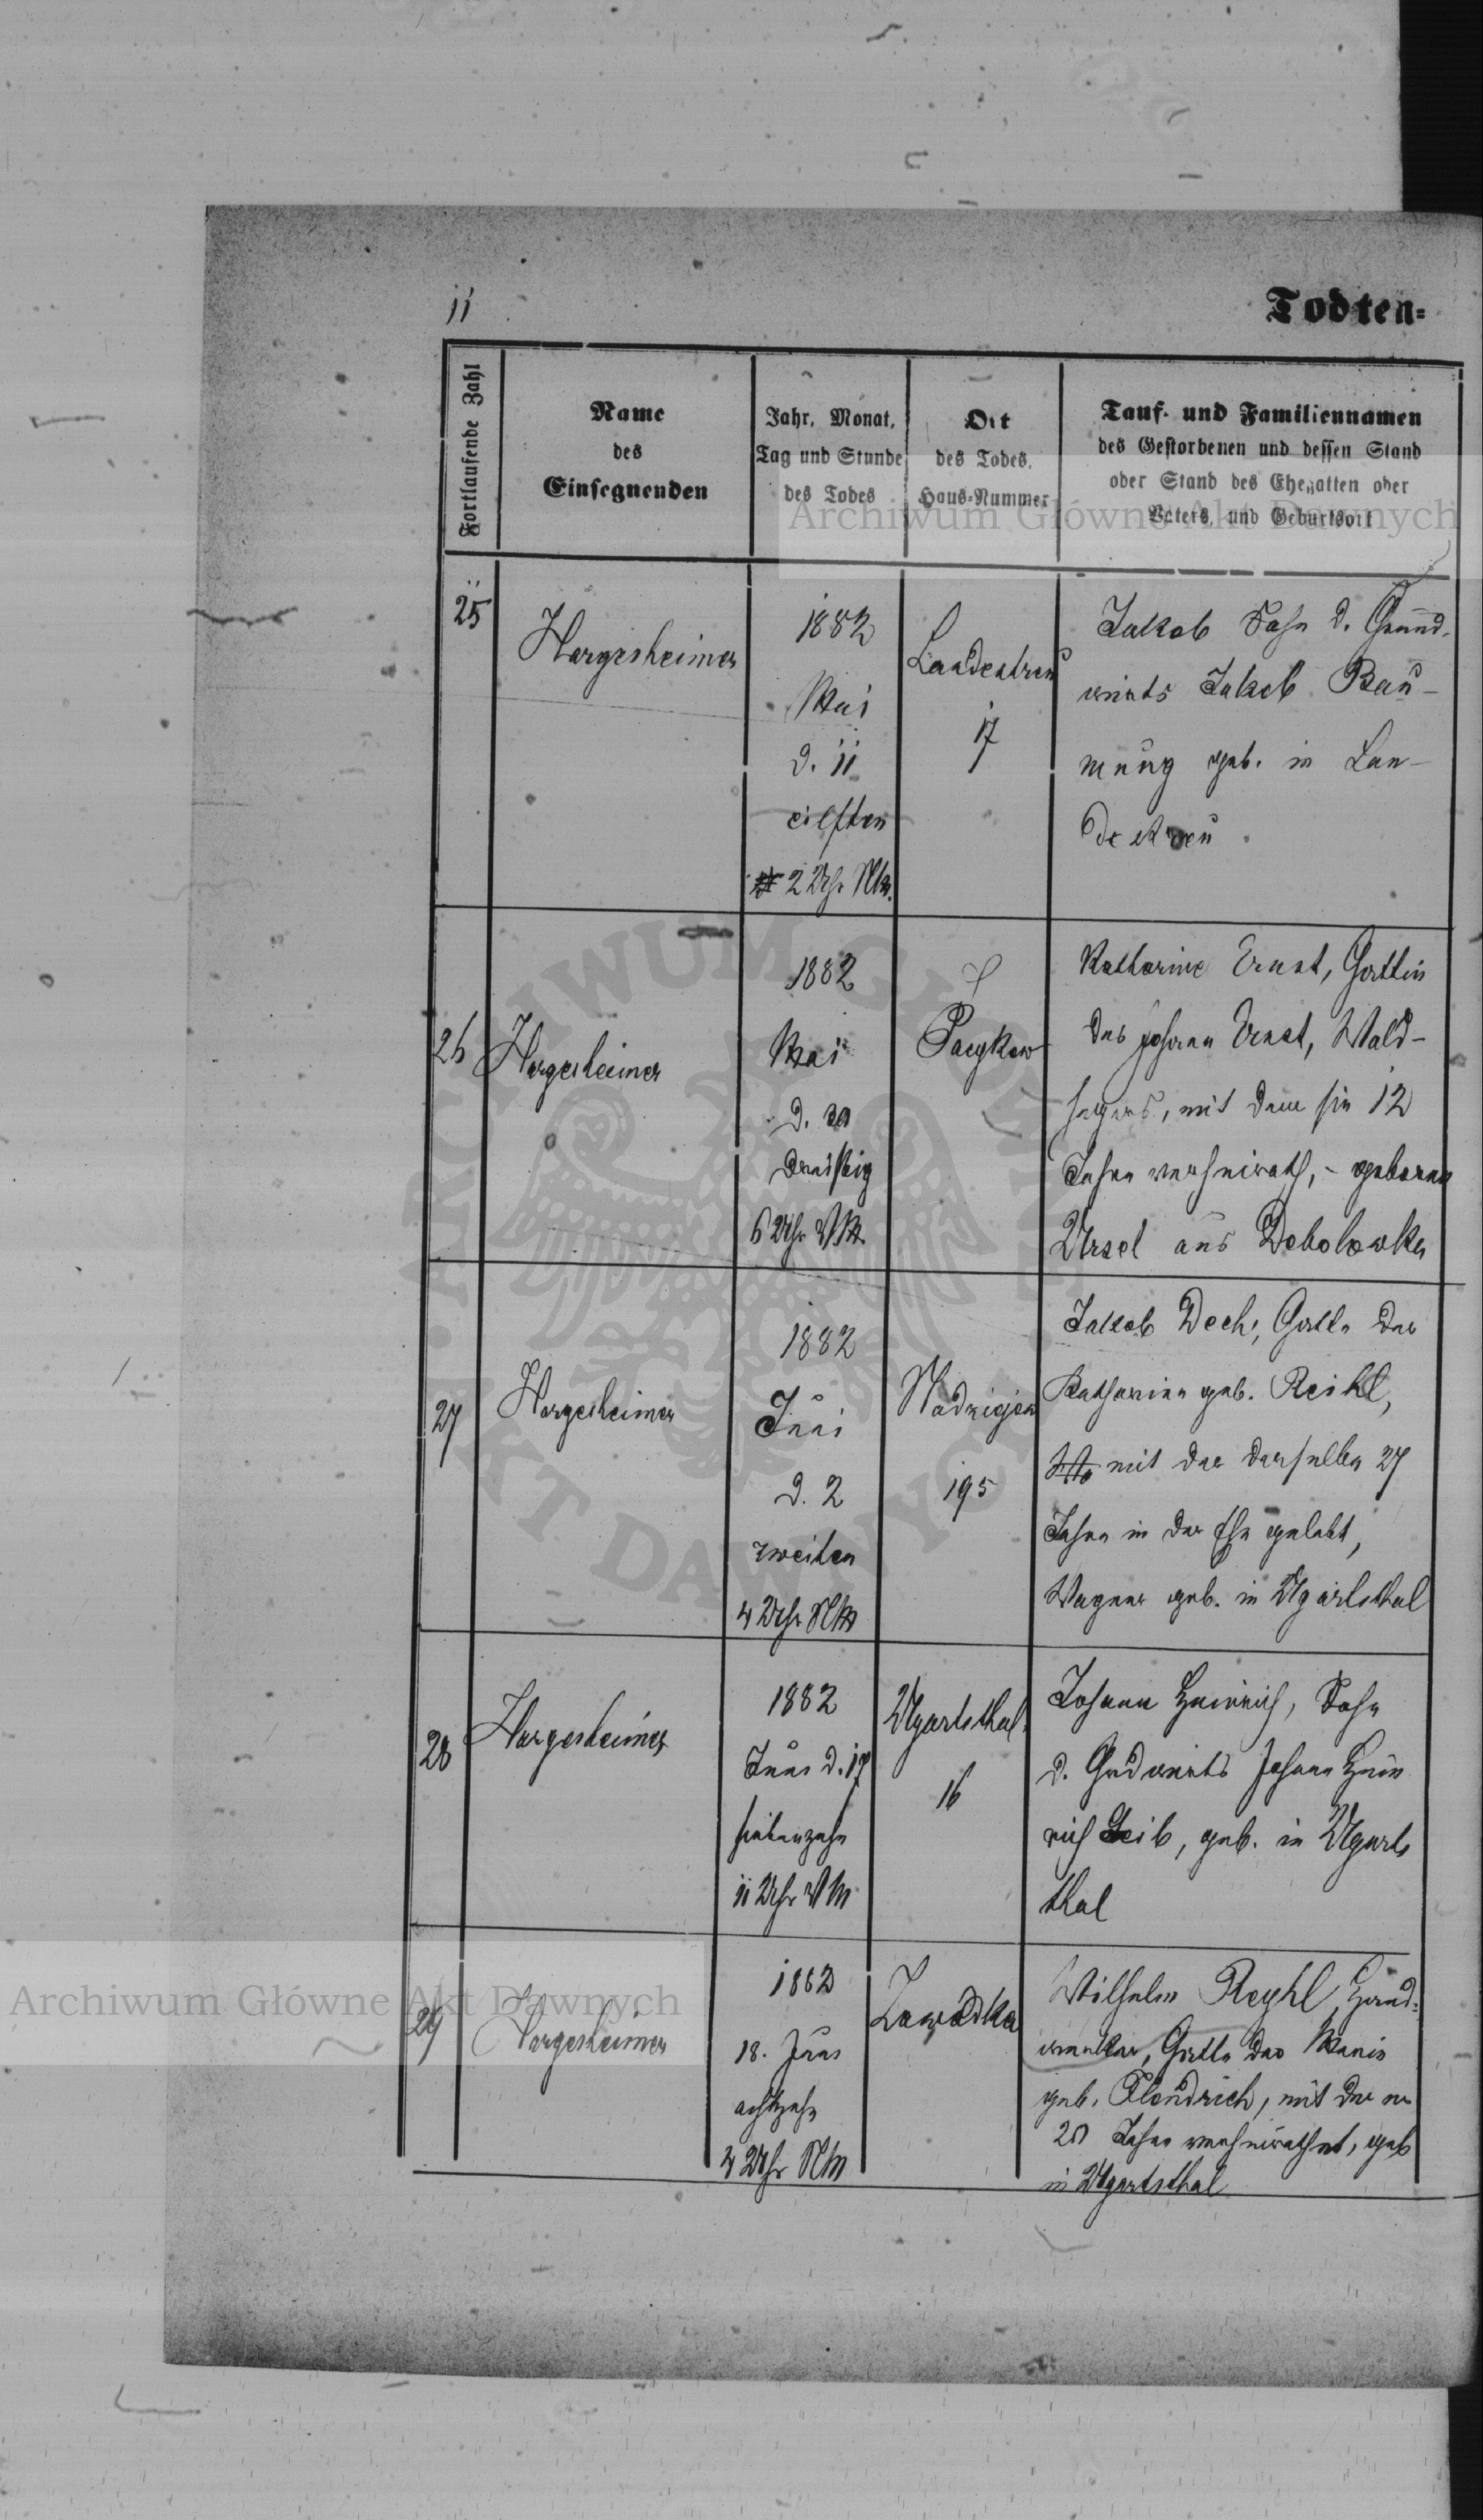 11
Todten-
Fortlaufende Zahl
Name
des
Einsegnenden
Jahr, Monat,
Tag und Stunde
des Todes
Ort
des Todes,
Haus-Nummer
Tauf- und Familiennamen
des Gestorbenen und dessen Stand
oder Stand des Ehegatten oder
Vaters, und Geburtsort
Archiwum Główne Akt Dawnych
25
Hargesheimer
1882
Mai
d. 11
eilften
2 Uhr NM.
Landestreu
17
Jakob Sohn d. Grund-
wirts Jakob Bau-
mung geb. in Lan-
destreu
26
Hargesheimer
1882
Mai
d. 30
dreißig
6 Uhr VM.
Pacykow
Katharine Ernst, Gattin
des Johann Ernst, Wald-
hegers, mit dem sie 12
Jahre verheirath, - geborene
Ursel aus Debolowka
27
Hargesheimer
1882
Juni
d. 2
zweiten
4 Uhr NM
195
Jakob Dech, Gatte der
Katharina geb. Reikl,
mit der derselbe 27
Jahre in der Ehe gelebt,
Wagner geb. in Ugartsthal
28
Hargesheimer
1882
Juni d. 17
siebenzehn
11 Uhr VM
Ugartsthal
16
Johann Heinrich, Sohn
d. Grdwirts Johann Hein
rich Leib, geb. in Ugarts
thal
29
Hargesheimer
1882
18. Juni
achtzehn
4 Uhr NM
Zawadka
Wilhelm Reykl, Hand-
werker, Gatte der Marie
geb. mit der er
20 Jahre verheirathet, geb
in Ugartsthal
Archiwum Główne Akt Dawnych
ARCHIWUM GŁÓWNE
AKT DAWNYCH